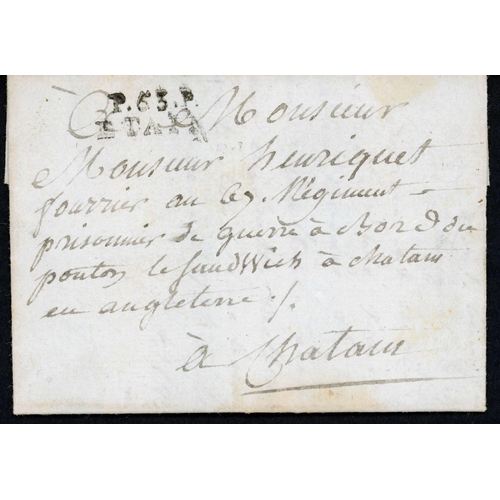 P.53.P.
ETAIN
A Monsieur
Monsieur henriquet
fourrier au 67. Régiment
prisonnier de guerre à Bord du
ponton le Sandwich à Chatam
en angleterre ./.
à Chatam